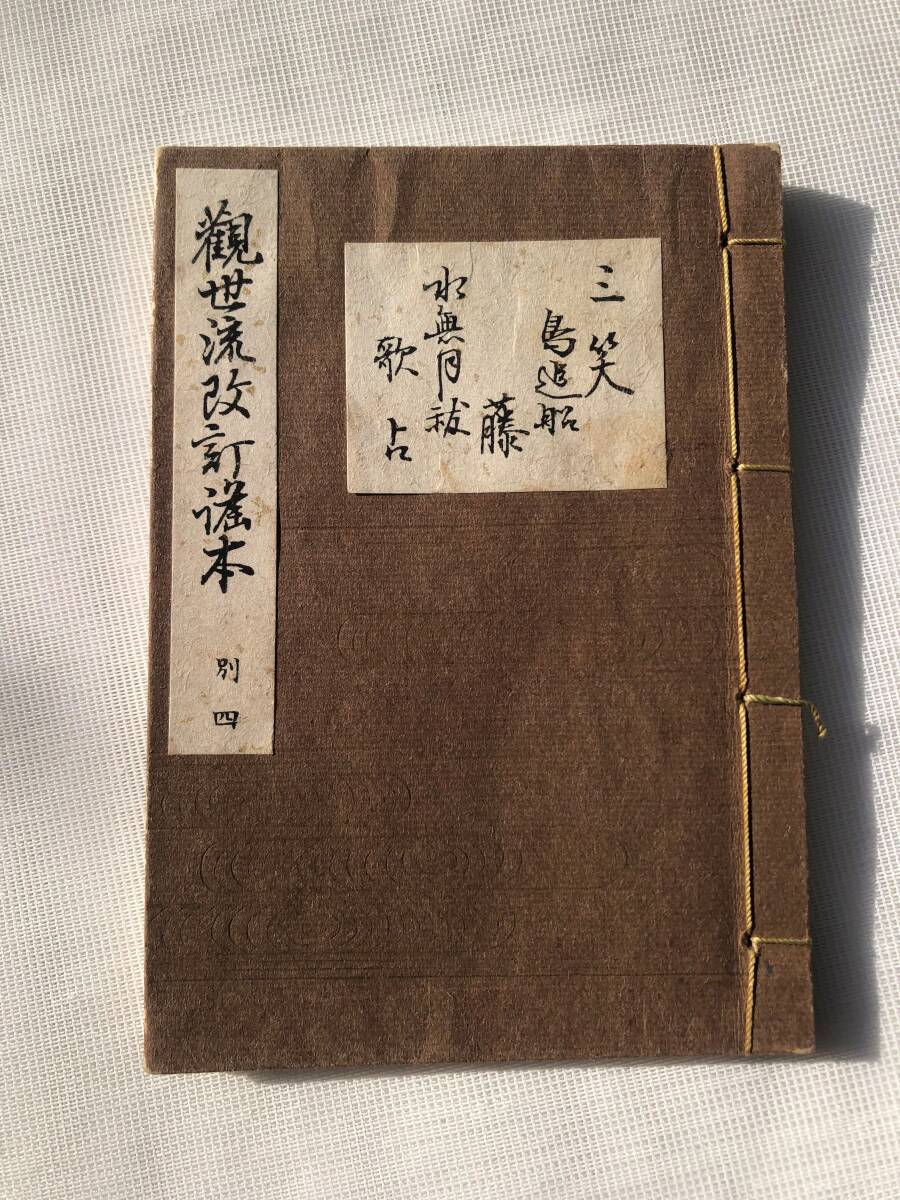 三笑
鳥追船
藤
水無月祓
歌占
觀世流改訂謠本
別四